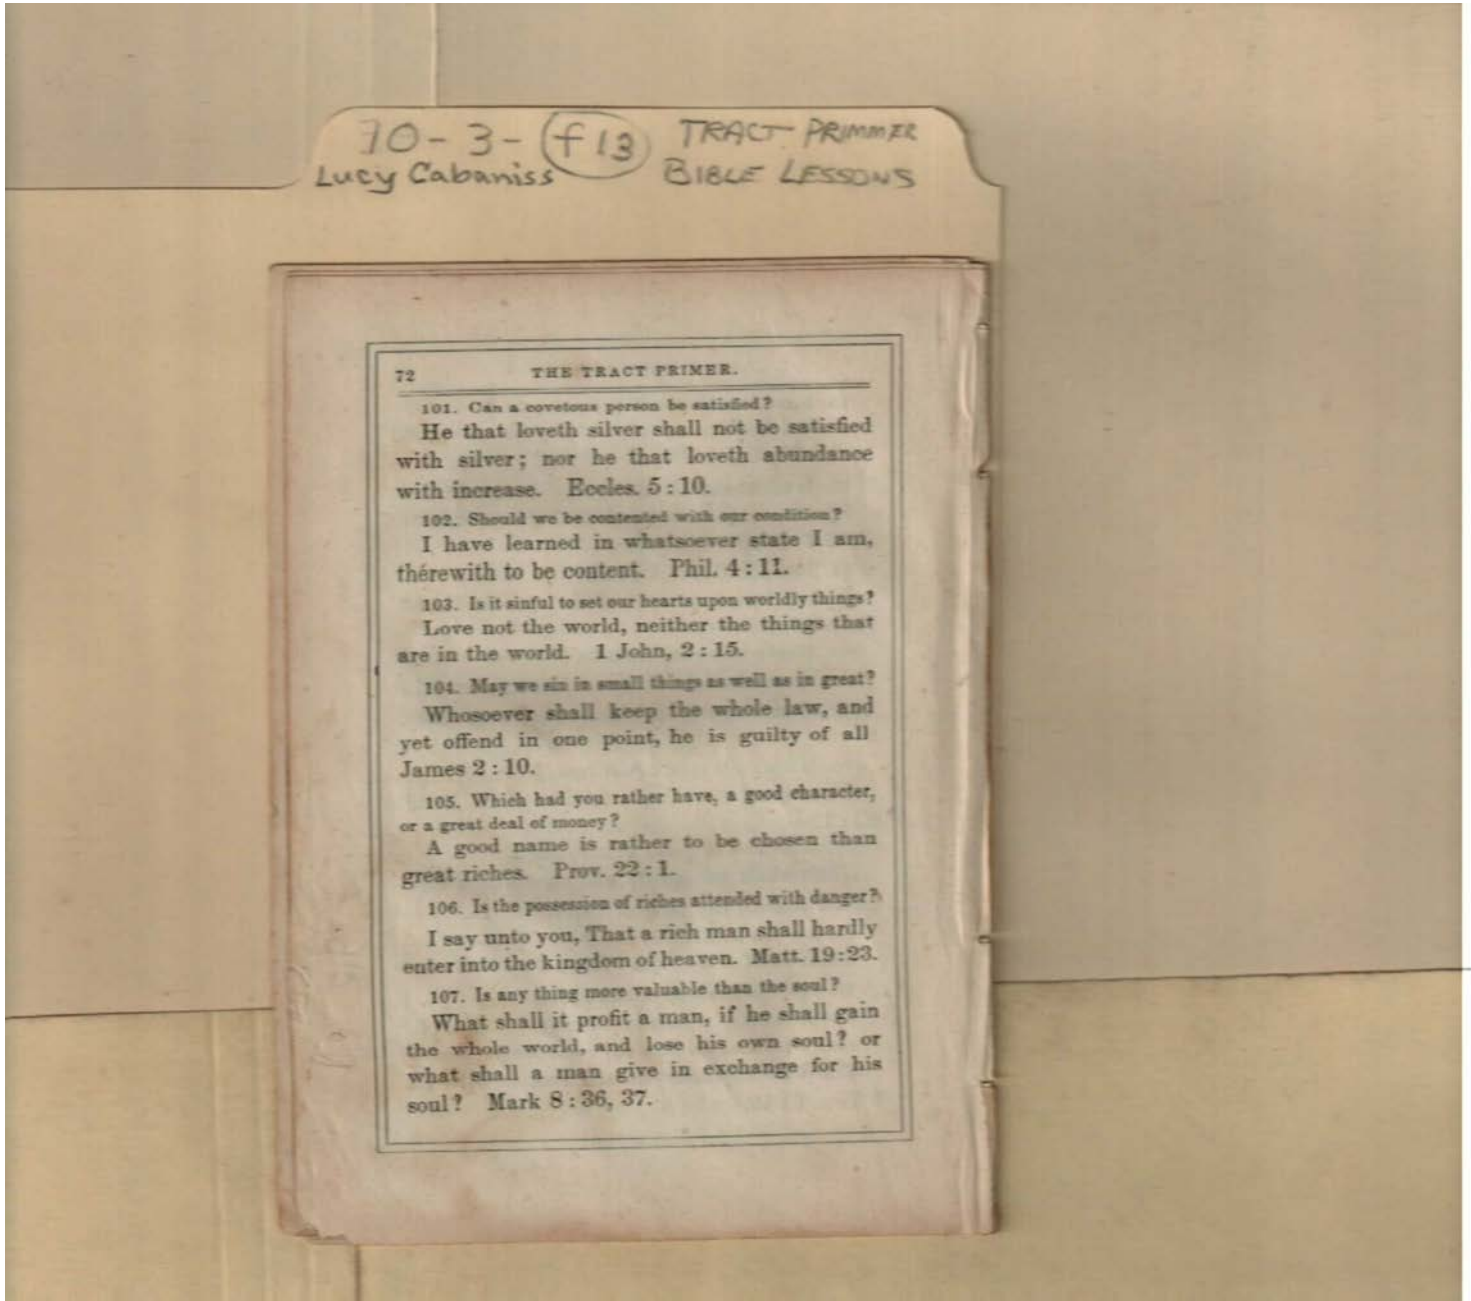 70-3-f13 TRACT PRIMMER
Lucy Cabaniss BIBLE LESSONS
72 THE TRACT PRIMER.
101. Can a covetous person be satisfied?
He that loveth silver shall not be satisfied
with silver; nor he that loveth abundance
with increase. Eccles. 5:10.
102. Should we be contented with our condition?
I have learned in whatsoever state I am,
therewith to be content. Phil. 4:11.
103. Is it sinful to set our hearts upon worldly things?
Love not the world, neither the things that
are in the world. 1 John, 2:15.
104. May we sin in small things as well as in great?
Whosoever shall keep the whole law, and
yet offend in one point, he is guilty of all
James 2:10.
105. Which had you rather have, a good character,
or a great deal of money?
A good name is rather to be chosen than
great riches. Prov. 22:1.
106. Is the possession of riches attended with danger?
I say unto you, That a rich man shall hardly
enter into the kingdom of heaven. Matt. 19:23.
107. Is any thing more valuable than the soul?
What shall it profit a man, if he shall gain
the whole world, and lose his own soul? or
what shall a man give in exchange for his
soul? Mark 8:36, 37.